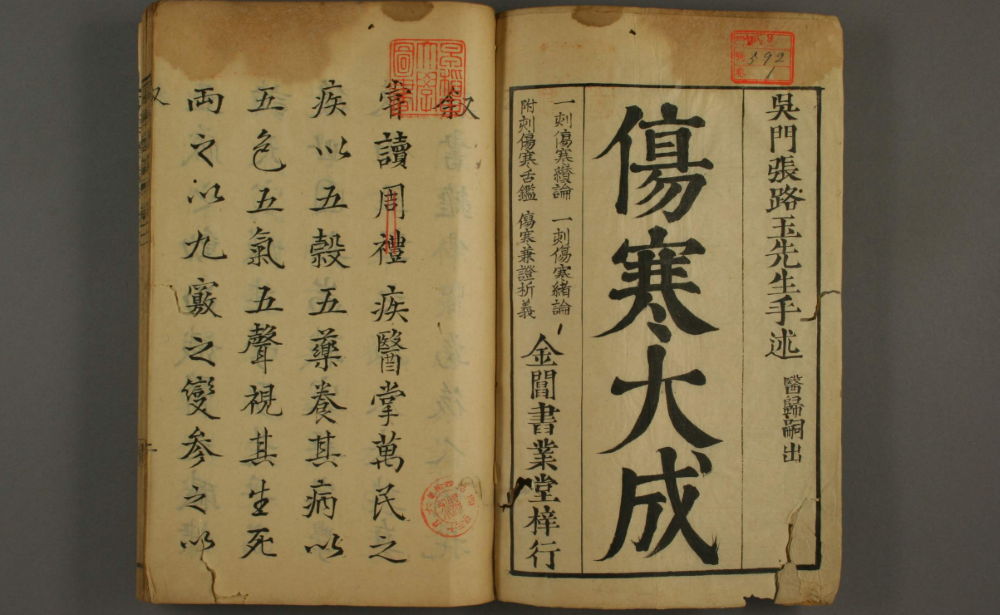 吳門張路玉先生手述
醫歸嗣出
傷寒大成
一刻傷寒纘論 一刻傷寒緒論
附刻傷寒舌鑑 傷寒兼證析義
金閶書業堂梓行
392
1
叙
嘗讀周禮疾醫掌萬民之
疾以五穀五藥養其病以
五色五氣五聲視其生死
兩之以九竅之變參之以
叙